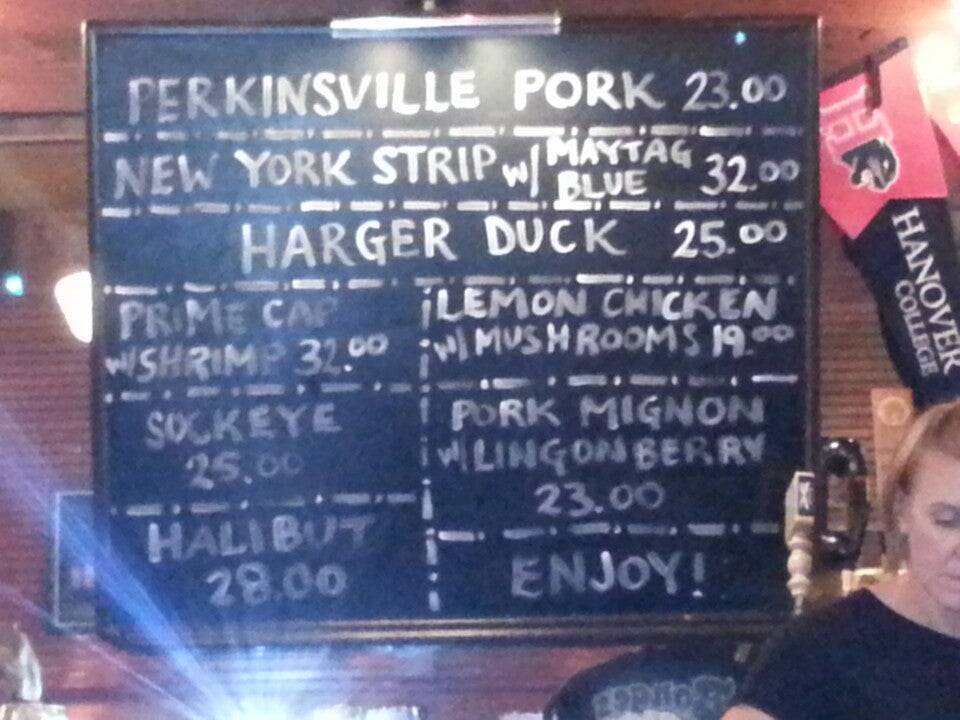 PERKINSVILLE PORK 23.00
NEW YORK STRIP W/ MAYTAG BLUE 32.00
HARGER DUCK 25.00
PRIME CAP
W/SHRIMP 32.00
SOCKEYE
25.00
HALIBUT
28.00
LEMON CHICKEN
W/MUSHROOMS 19.00
PORK MIGNON
W/LINGONBERRY
23.00
ENJOY!
HANOVER
COLLEGE